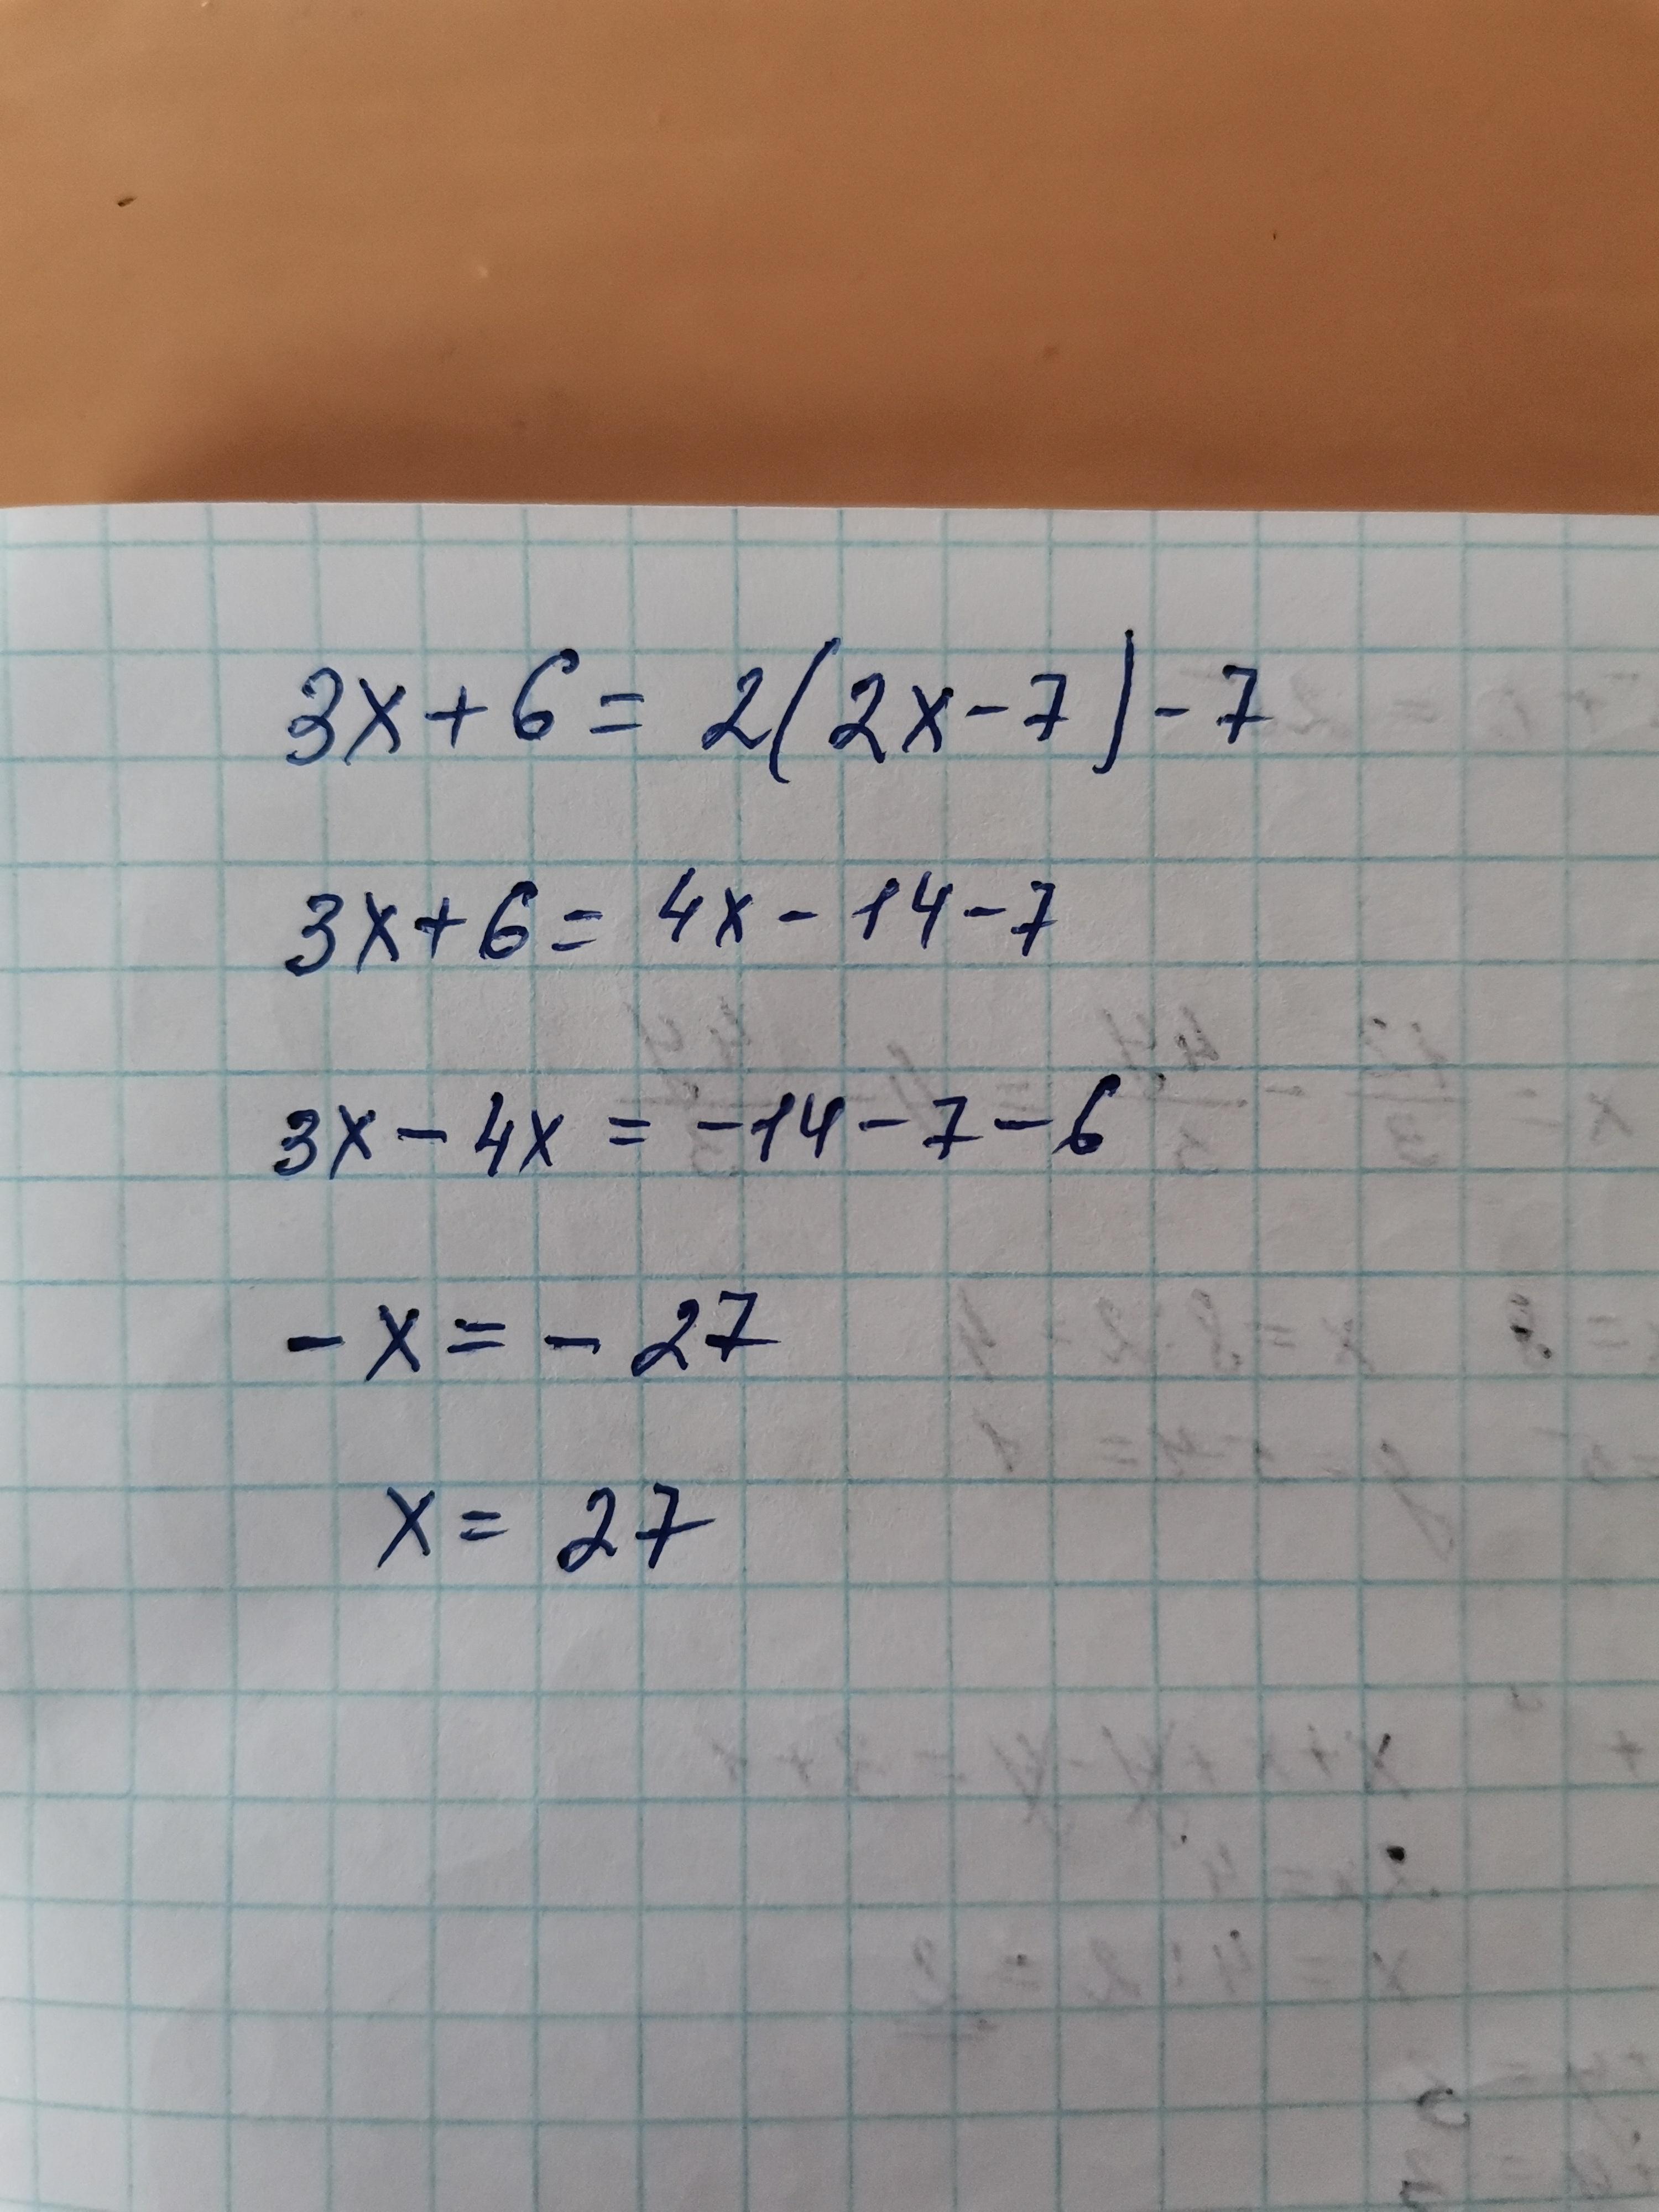 3x+6= 2(2x-7)-7
3x+6= 4x-14-7
3x-4x = -14-7-6
-x=-27
x= 27